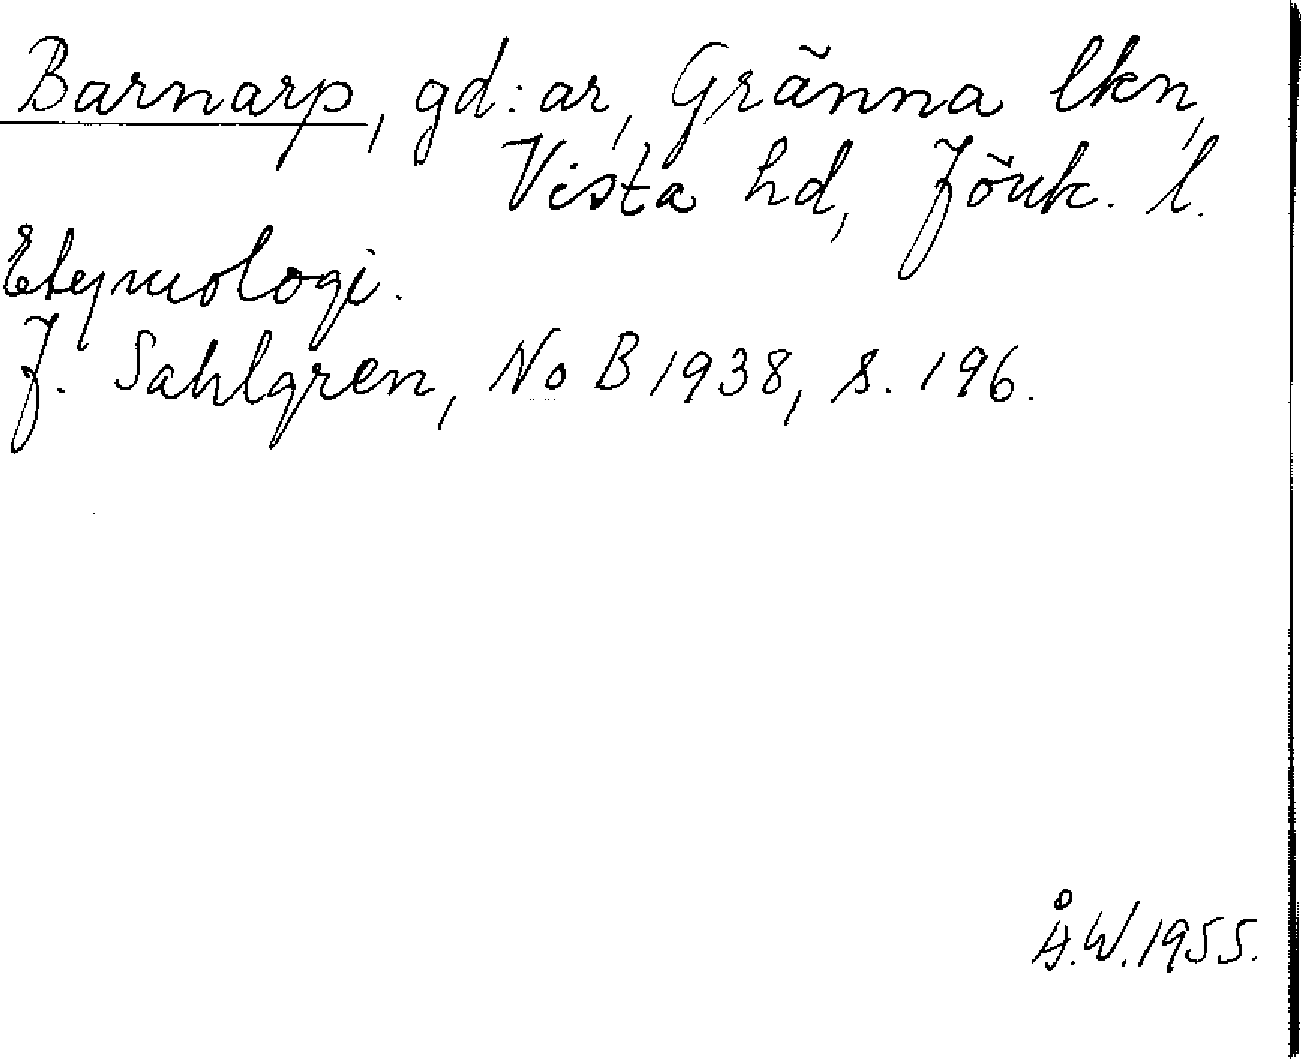 Barnarp, gd:ar, Gränna lkn,
Vista hd, Jönk. l.
Etymologi.
J. Sahlgren, NoB 1938, s. 196.
Å.W. 1955.